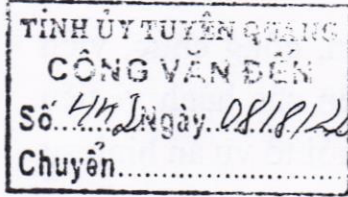 TỈNH ỦY TUYÊN QUANG
CÔNG VĂN ĐẾN
Số.......Ngày..08/8/20
Chuyển....................